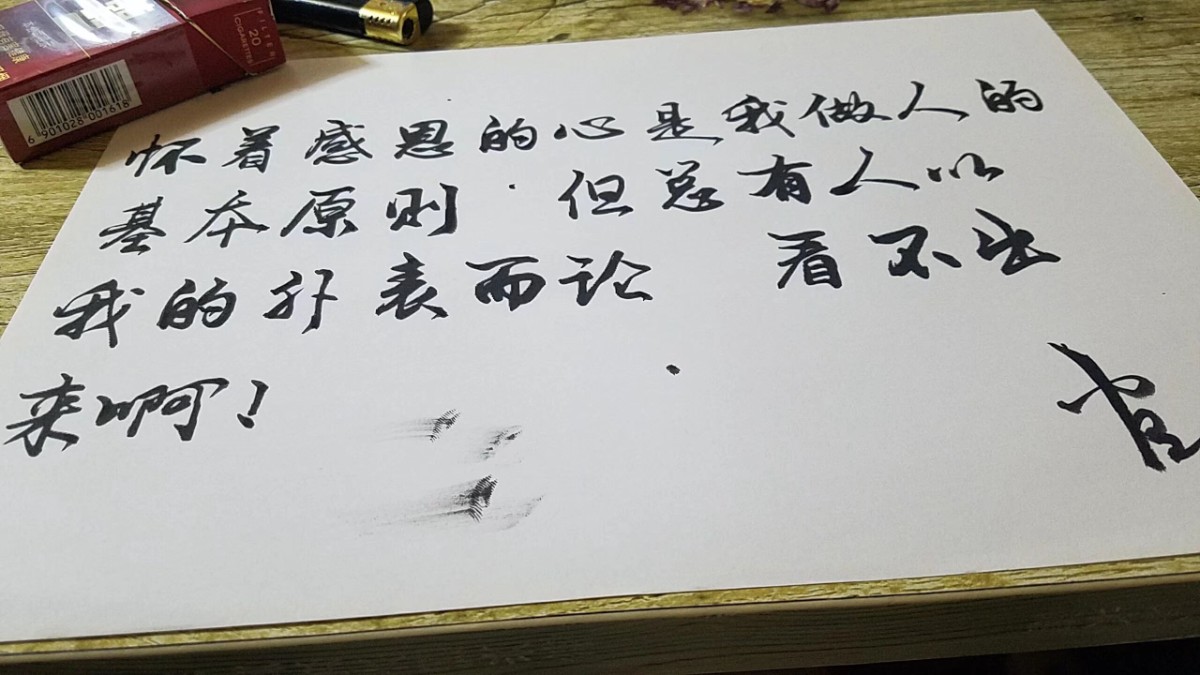 FILTER
20
CIGARETTES
6 901028 001618
怀着感恩的心是我做人的
基本原则·但总有人以
我的外表而论 看不出
来啊!